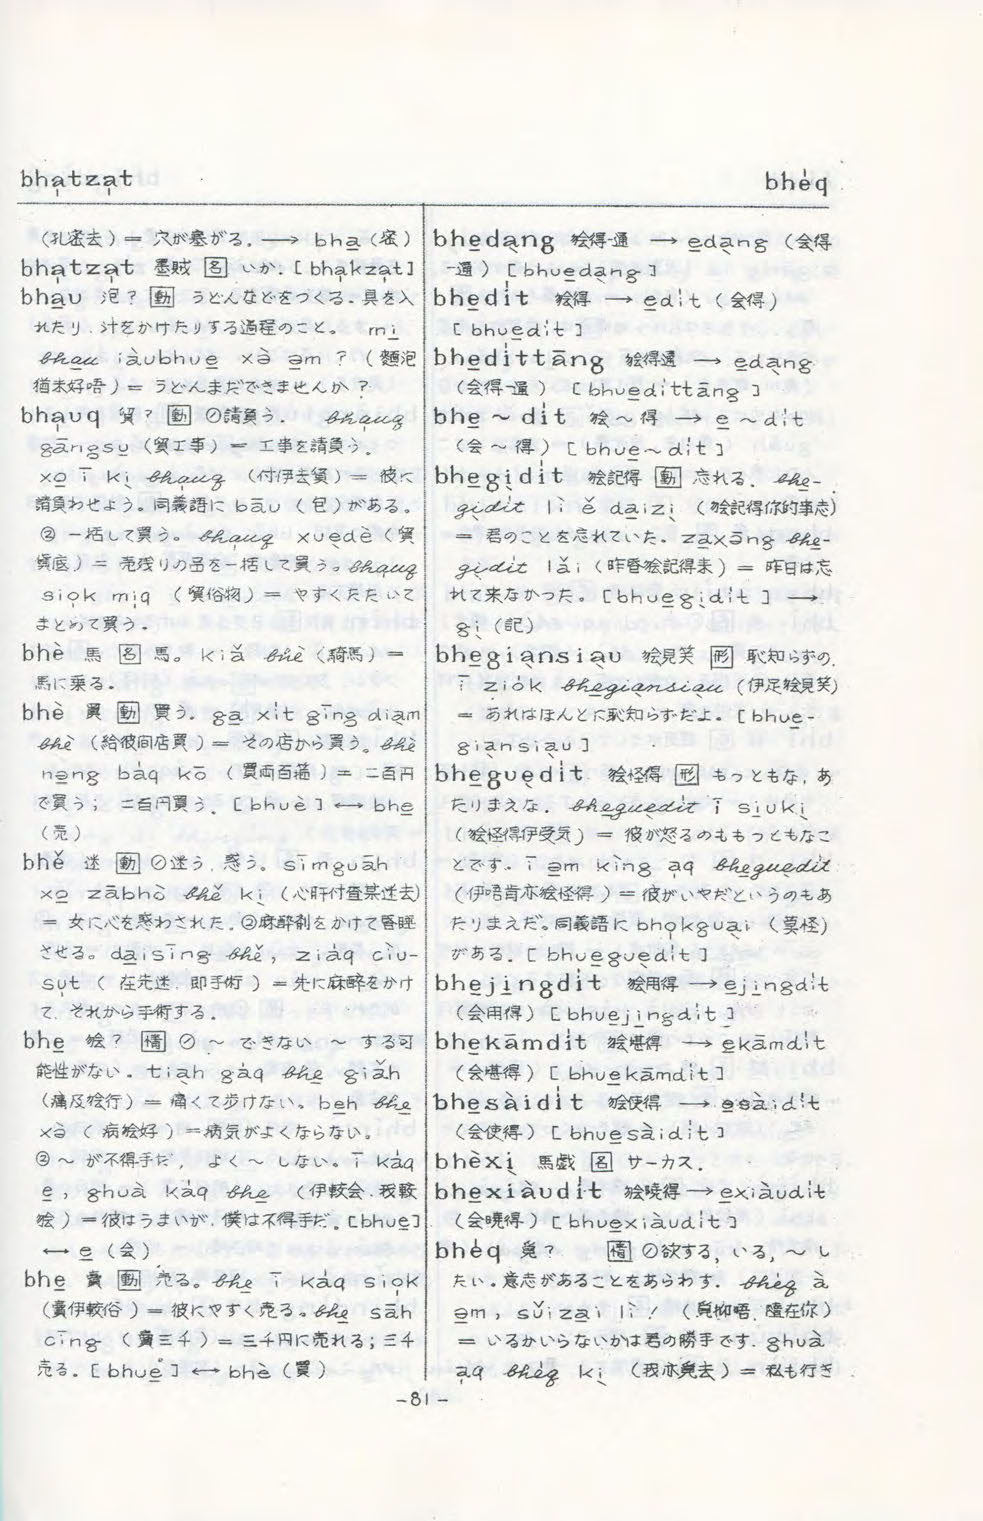 bha̱tza̱t
bhe̍q
(孔密去) = 穴が塞がる. ⟶ bha̱ (密)
bha̍tza̍t 墨賊 [名] いか. [bha̍kza̍t]
bha̱u 泡? [動] うどんなどをつくる. 具を入
れたり. 汁をかけたりする過程のこと。 mi̱
bha̱u iàubhue̱ xà a̱m ? (麺泡
猶未好唔) = うどんまだできませんか?
bha̱uq 貿? [動] ①請負う. bha̱uq
gāngsu̱ (貿工事) = 工事を請負う。
xo̱ ī kì̱ bha̱uq (付伊去貿) = 彼に
請負わせよう。同義語に bāu (包)がある。
② 一括して買う。 bha̱uq xue̱dè (貿
貨底) = 売残りの品を一括して買う。bha̱uq
sio̍k mi̍q (貿俗物) = やすくたたいて
まとめて買う.
bhè 馬 [名] 馬。 kiǎ bhè (騎馬) =
馬に乗る.
bhè 買 [動] 買う。 ga̱ xi̍t gīng diàm
bhè (給彼间店買) = その店から買う。bhè
ne̱ng bàq kō (買両百箍) = 二百円
で買う; 二百円買う. [bhuè] ⟷ bhe̱
(売)
bhě 迷 [動] ①迷う. 惑う。 sīmguāh
xo̱ zābhò bhě kì̱ (心肝付查某迷去)
= 女に心を惑わされた. ②麻酔剤をかけて昏睡
させる。 da̱isīng bhě, ziàq cìu-
su̍t (在先迷, 即手術) = 先に麻酔をかけ
て. それから手術する.
bhe̱ 絵? [情] ① ~ できない ~ する可
能性がない. tiàh gàq bhe̱ giǎh
(痛及絵行) = 痛くて歩けない。 be̱h bhe̱
xà (病絵好) = 病気がよくならない。
② ~ が不得手だ, よく ~ しない。 ī kàq
e̱, ghuà kàq bhe̱ (伊較会. 我較
絵) = 彼はうまいが. 僕は不得手だ. [bhue̱]
⟷ e̱ (会)
bhe̱ 賣 [動] 売る。 bhe̱ ī kàq sio̍k
(賣伊較俗) = 彼にやすく売る。bhe̱ sāh
cīng (賣三千) = 三千円に売れる; 三千
売る。 [bhue̱] ⟷ bhè (買)
bhe̱da̱ng 絵得-通 ⟶ e̱da̱ng (会得
-通) [bhue̱da̱ng]
bhe̱di̍t 絵得 ⟶ e̱di̍t (会得)
[bhue̱di̍t]
bhe̱di̍ttāng 絵得通 ⟶ e̱da̱ng
(会得-通) [bhue̱di̍ttāng]
bhe̱ ~ di̍t 絵 ~ 得 ⟶ e̱ ~ di̍t
(会 ~ 得) [bhue̱ ~ di̍t]
bhe̱gì̱di̍t 絵記得 [動] 忘れる. bhe̱-
gì̱di̍t lì ě da̱izì̱ (絵記得你的事志)
= 君のことを忘れていた。 za̱xāng bhe̱-
gì̱di̍t lǎi (昨昏絵記得来) = 昨日は忘
れて来なかった。 [bhue̱gì̱di̍t] ⟶
gì̱ (記)
bhe̱giànsiàu 絵見笑 [形] 恥知らずの.
ī zio̍k bhe̱giànsiàu (伊足絵見笑)
= あれはほんとに恥知らずだよ。 [bhue̱-
giànsiàu]
bhe̱guèdi̍t 絵怪得 [形] もっともな, あ
たりまえな. bhe̱guèdi̍t ī siu̱kì̱
(絵怪得伊受気) = 彼が怒るのももっともなこ
とです. ī a̱m kìng a̱q bhe̱guèdi̍t
(伊唔肯亦絵怪得) = 彼がいやだというのもあ
たりまえだ。同義語に bho̍kguài (莫怪)
がある. [bhue̱guèdi̍t]
bhe̱ji̱ngdi̍t 絵用得 ⟶ e̱ji̱ngdi̍t
(会用得) [bhue̱ji̱ngdi̍t]
bhe̱kāmdi̍t 絵堪得 ⟶ e̱kāmdi̍t
(会堪得) [bhue̱kāmdi̍t]
bhe̱sàidi̍t 絵使得 ⟶ e̱sàidi̍t
(会使得) [bhue̱sàidi̍t]
bhèxì̱ 馬戯 [名] サーカス.
bhe̱xiàudi̍t 絵曉得 ⟶ e̱xiàudi̍t
(会曉得) [bhue̱xiàudi̍t]
bhe̍q ? [情] ①欲する, いる, ~ し
たい。意志があることをあらわす. bhe̍q à
a̱m, sǔizāi lì !
= いるかいらないかは君の勝手です. ghuà
a̱q bhe̍q kì̱ = 私も行き
-81-